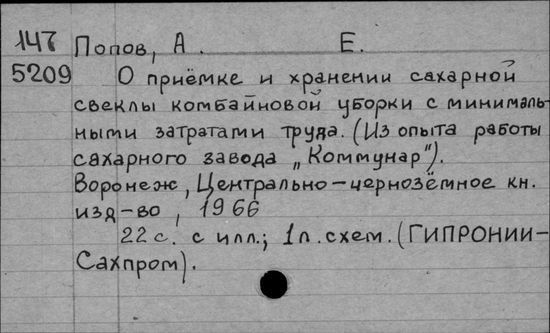 147 Попов, А. Е.
5209 О приёмке и хранении сахарной
свеклы комбайновой уборки с минималь-
ными затратами труда. (Из опыта работы
сахарного завода „Коммунар").
Воронеж, Центрально-чернозёмное кн.
изд-во, 1966
22 с. с илл.; 1 л. схем. (ГИПРОНИИ-
Сахпром).